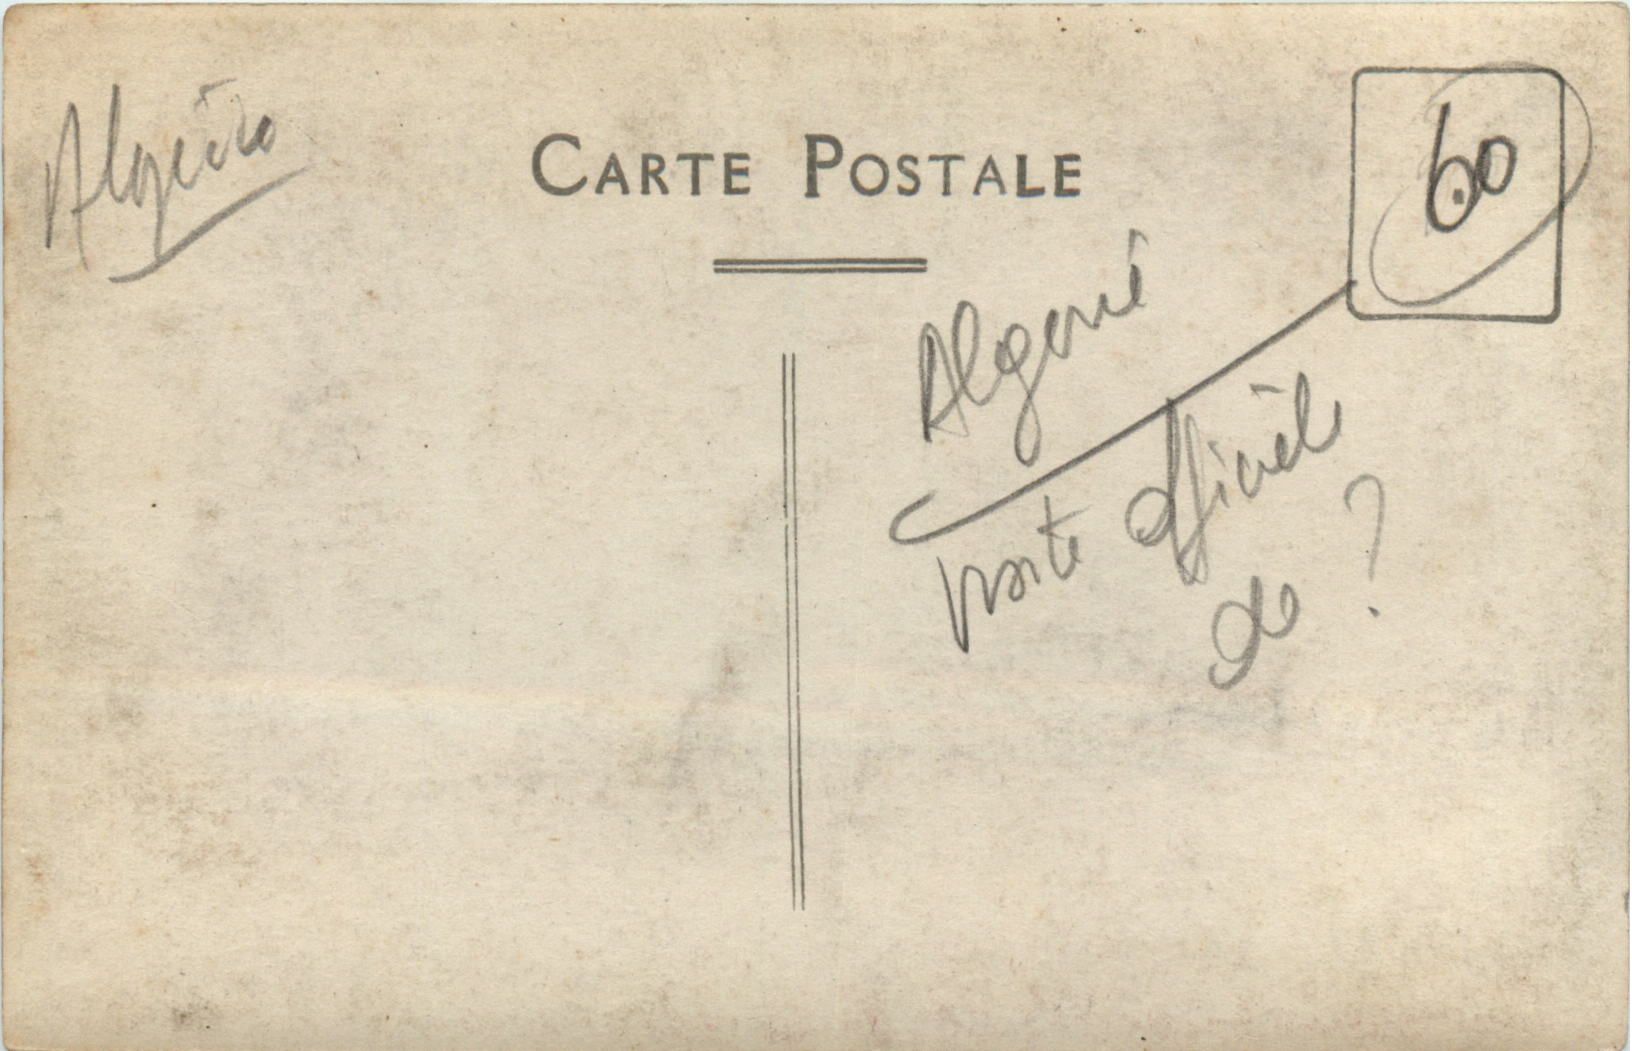 Algérie
CARTE POSTALE
60
Algérie
visite officielle
de ?